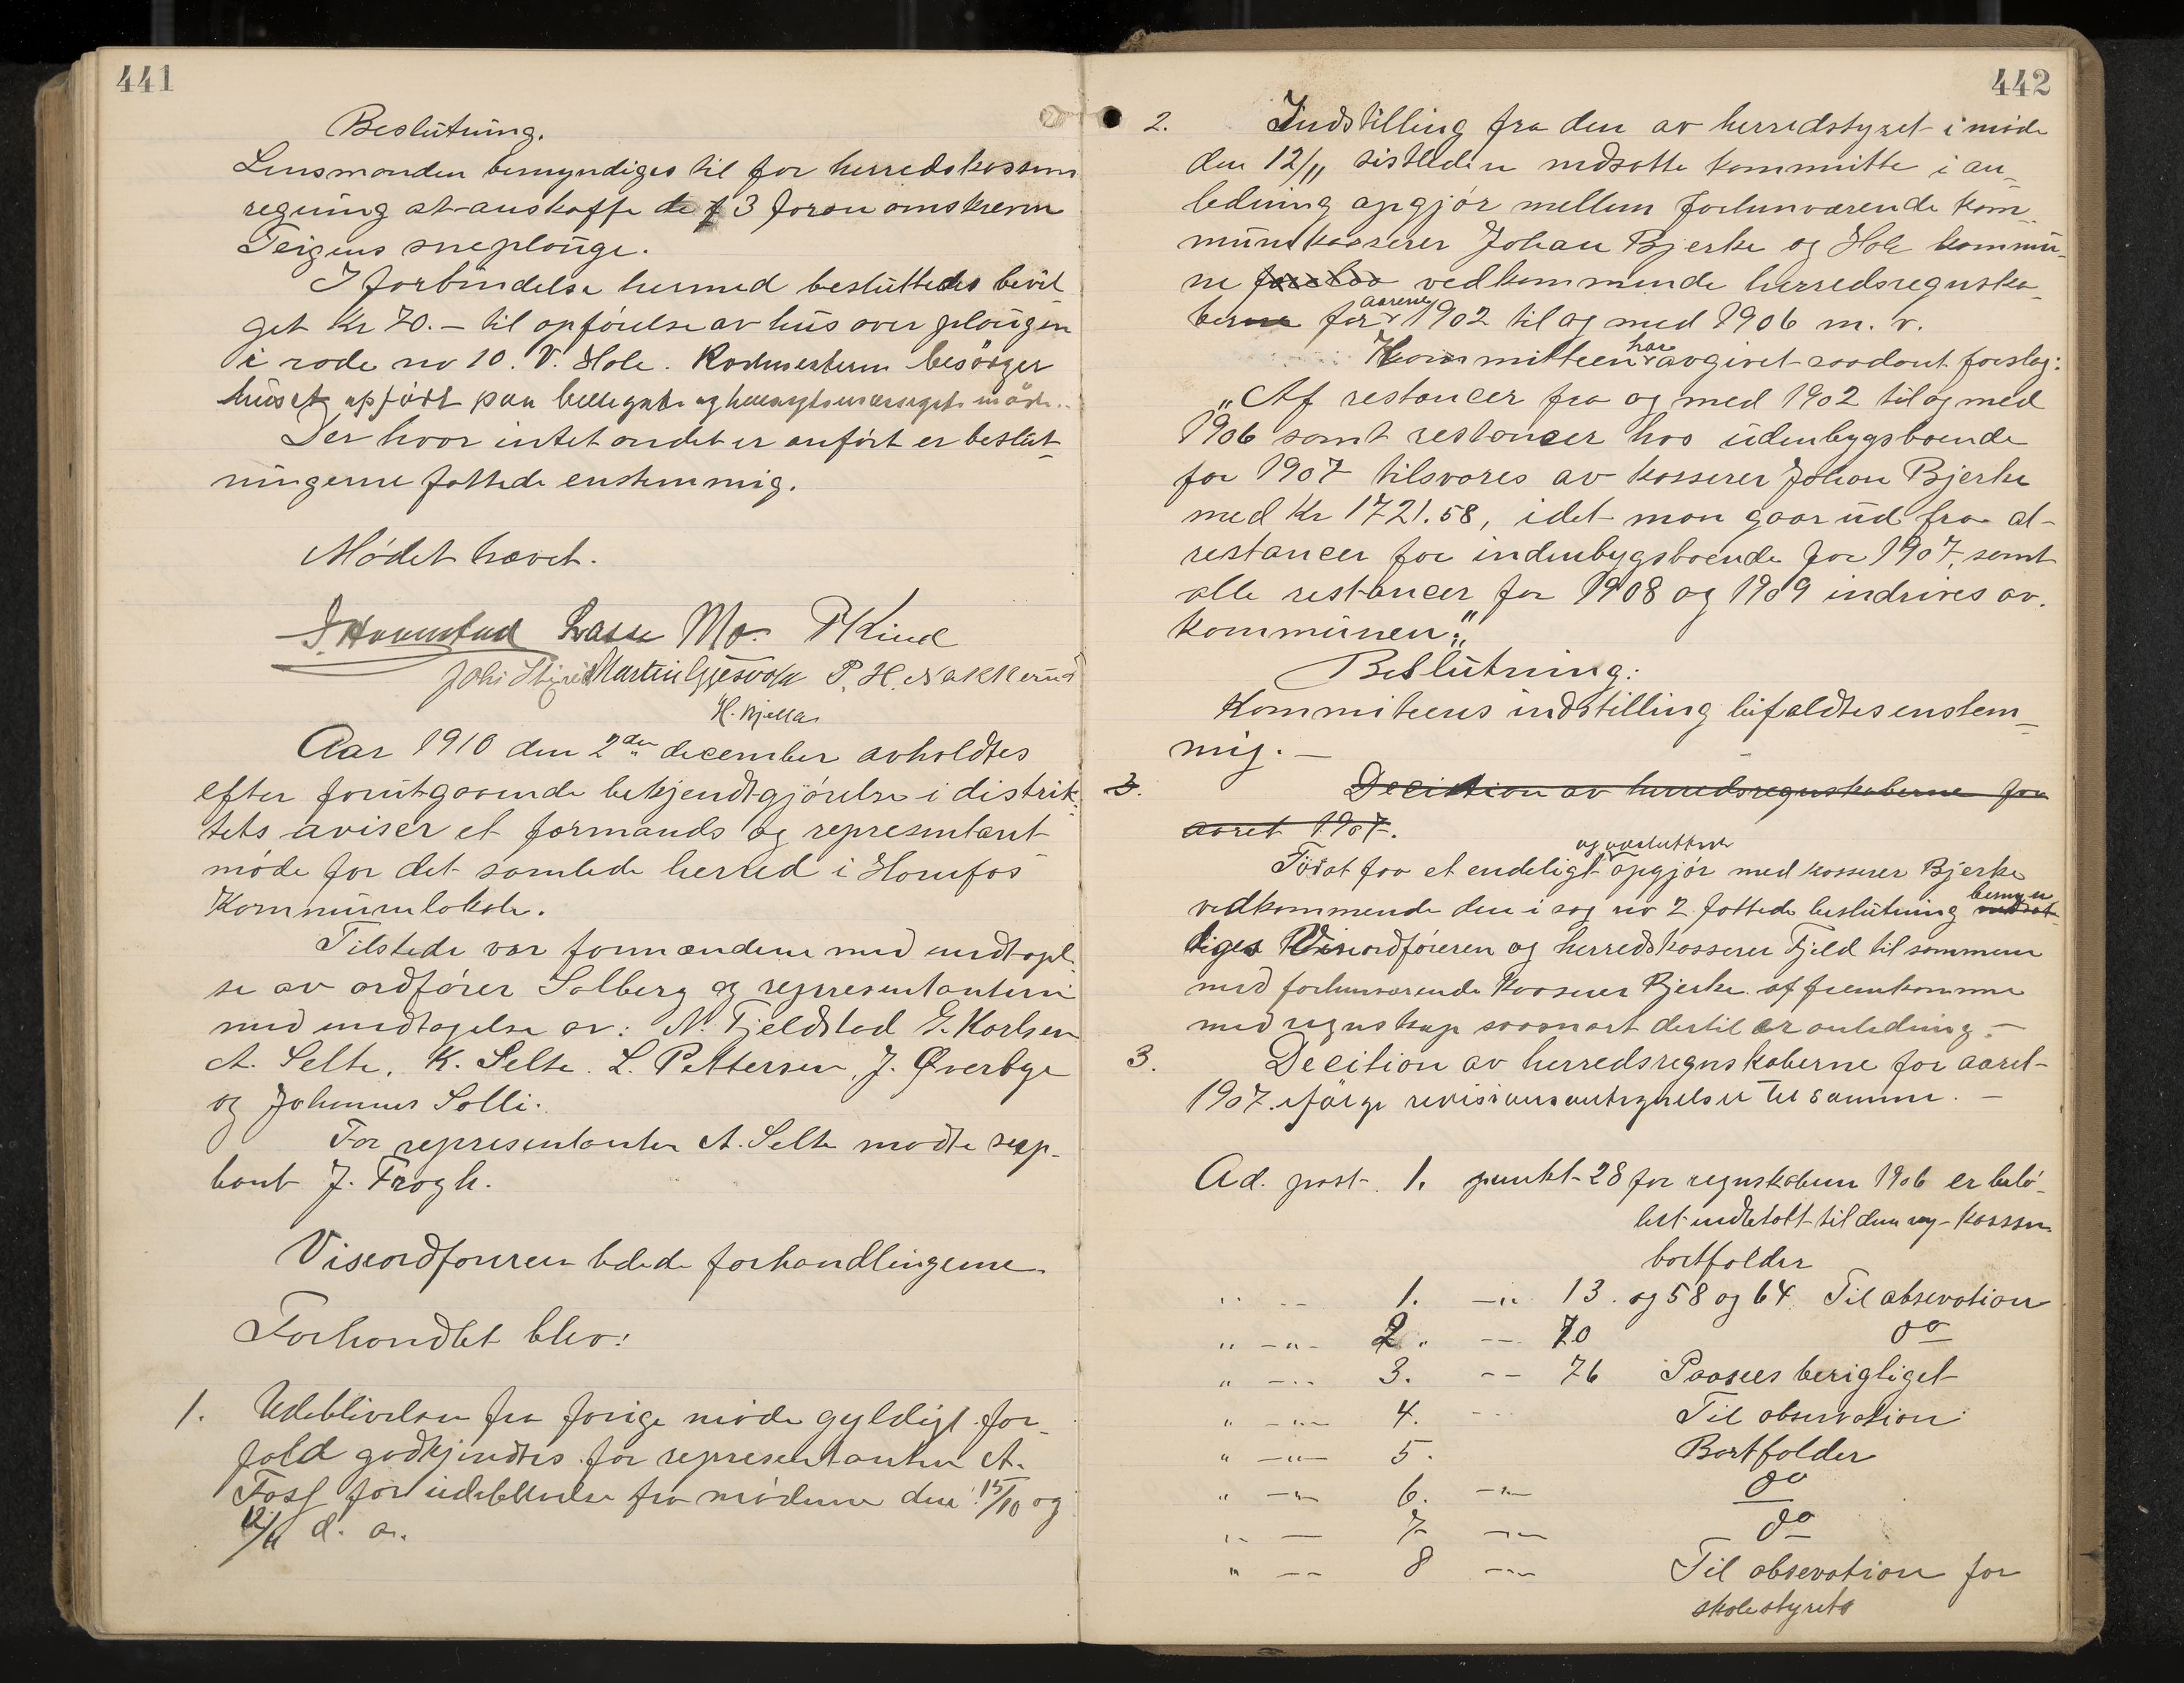 441
Beslutning.
Lensmanden bemyndiges til for herredskassens
regning at anskaffe de 3 foran omskrevne
Teigens sneplouge.
I forbindelse hermed besluttedes bevil-
get Kr 70.– til opførelse av hus over plougen
i rode no 10. V. Hole. Rodemesteren besørger
huset opført paa billigste og hensigtsmæssigste måde.
Der hvor intet andet er anført er beslut-
ningerne fattede enstemmig.
Mødet hævet.
Lasse Mo. P Kind
Martin Gjesvold P. H. Nakkerud
H. Bjella
Aar 1910 den 2den december avholdtes
efter forutgaaende bekjendtgjørelse i distrik-
tets aviser et formands og representant-
møde for det samlede herred i Hønefos
Kommunelokale.
Tilstede var formændene med undtagel-
se av ordfører Solberg og representanterne
med undtagelse av: N. Fjeldstad G. Karlsen
A. Selte, K. Selte. L. Pettersen, J. Øverbye
og Johannes Solli.
For representanten A. Selte mødte sup-
leant J. Frogh.
Viseordføreren ledede forhandlingerne.
Forhandlet blev:
1. Udeblivelsen fra forige møde gyldigt for-
fald godkjendtes for representanten A.
Foss for udeblivelse fra møderne den 15/10 og
12/11 d. a.
442
2. Indstilling fra den av herredstyret i møde
den 12/11 sistleden nedsatte kommitte i an-
ledning opgjør mellem forhenværende kom-
munekasserer Johan Bjerke og Hole kommu-
ne vedkommende herredsregnska-
berne for aarene 1902 til og med 1906 m. v.
Kommitteen har avgivet saadant forslag:
„Af restancer fra og med 1902 til og med
1906 samt restancer hos udenbygsboende
for 1907 tilsvares av kasserer Johan Bjerke
med Kr 1721.58, idet man gaar ud fra at
restancer for indenbygsboende for 1907, samt
alle restancer for 1908 og 1909 indrives av
kommunen.“
Beslutning:
Kommiteens indstilling bifaldtes enstem-
mig. –
3. Decition av herredsregnskaberne for
aaret 1907.
For at faa et endeligt og avsluttende opgjør med kasserer Bjerke
vedkommende den i sag no 2 fattede beslutning bemyn
diges Viseordføreren og herredskasserer Fjeld til sammen
med forhenværende Kasserer Bjerke at fremkomme
med regnskap saasnart dertil er anledning. –
3. Decition av herredsregnskaberne for aaret
1907. ifølge revisionsantegnelser til samme. –
Ad. post. 1. punkt 28 for regnskabene 1906 er belø-
bet indbetalt til den ny-kassen
bortfalder
„ – „ 1. – „ 13. og 58 og 64 Til observation
„ – „ – 2. – – 70 do
„ – „ 3. – – 76 Passees berigtiget
„ – „ – 4. – – Til observation
„ – „ – 5. Bortfalder
„ – „ – 6. – „ – do
„ – 7. – „ – do
„ – – 8 – „ – Til observation for
skolestyret